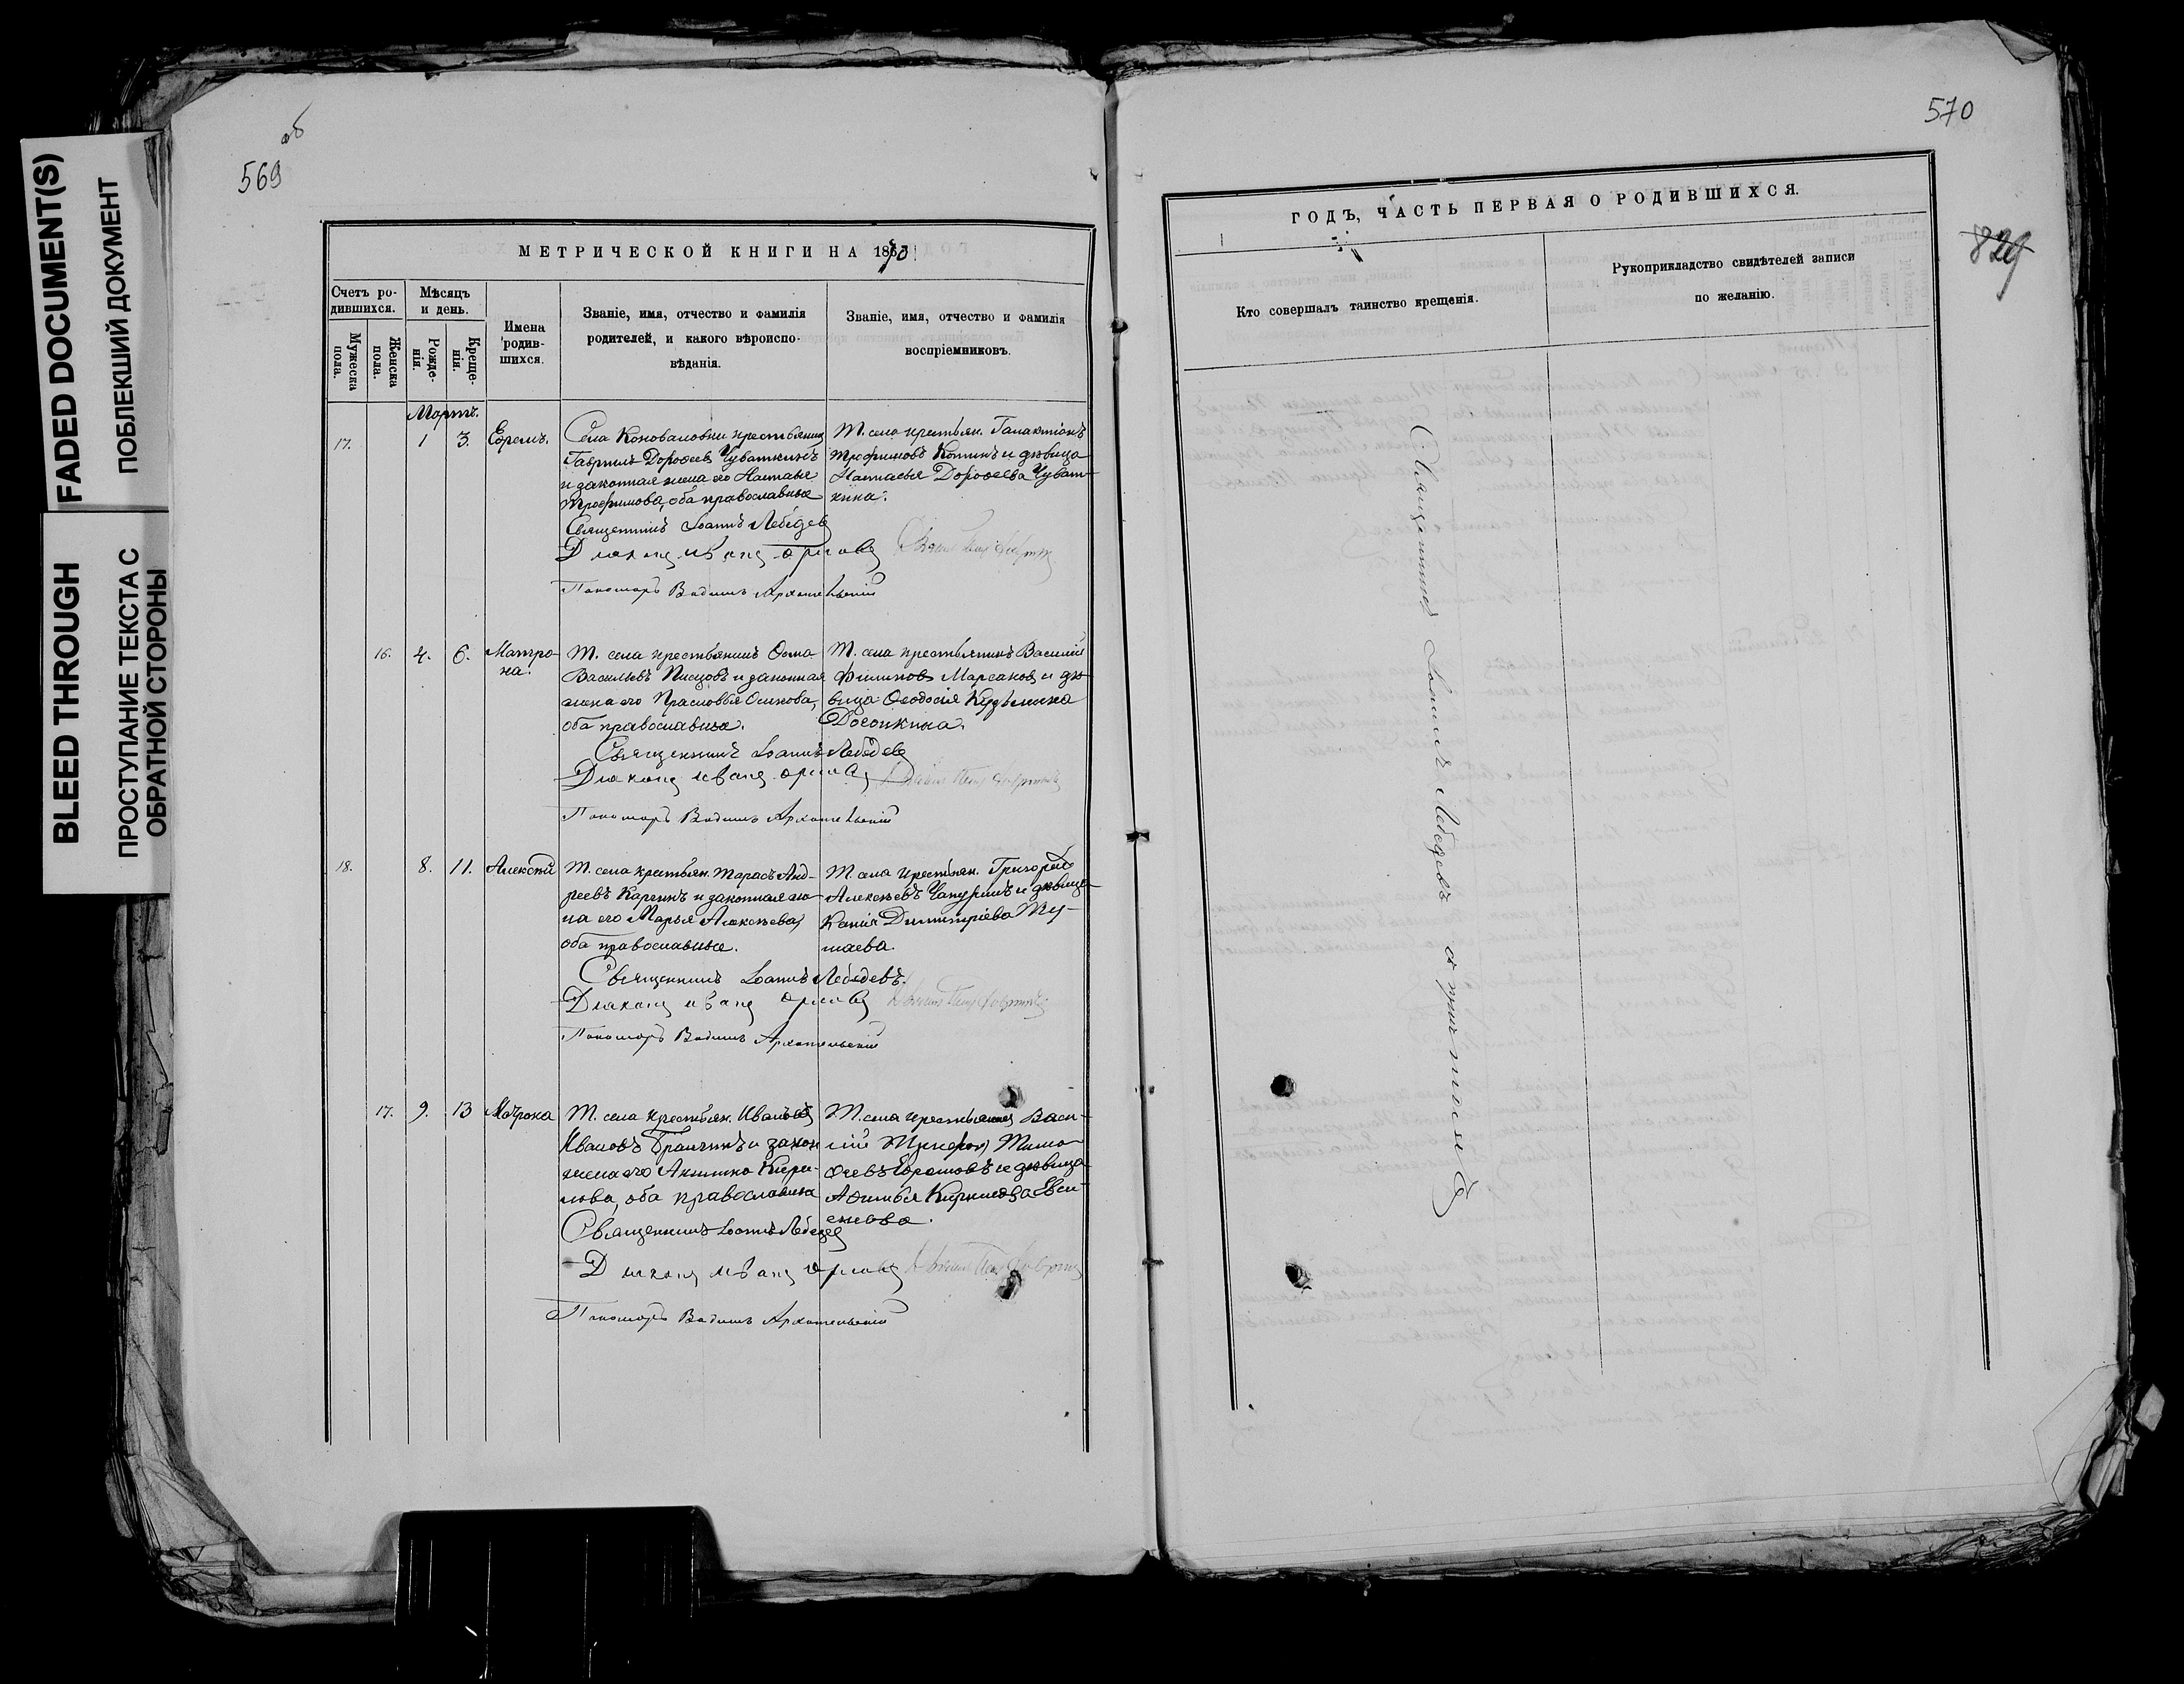 FADED DOCUMENT(S)
ПОБЛЕКШИЙ ДОКУМЕНТ
BLEED THROUGH
ПРОСТУПАНИЕ ТЕКСТА С
ОБРАТНОЙ СТОРОНЫ
об
569
МЕТРИЧЕСКОЙ КНИГИ НА 1870
Счетъ ро-
дившихся.
Мужеска
пола.
Женска
пола.
Мѣсяцъ
и день.
Рожде-
нія.
Креще-
нія.
Имена
родив-
шихся.
Званіе, имя, отчество и фамилія
родителей, и какого вѣроиспо-
вѣданія.
Званіе, имя, отчество и фамилія
воспріемниковъ.
Мартъ.
17. 1 3. Ефремъ.
Села Коноваловки крестьянинъ
Гаврилъ Дороѳеевъ Чуваткинъ
и законная жена его Настасья
Трофимова, оба православные
Т. села крестьян. Галактіонъ
Трофимовъ Котинъ и дѣвица
Настасья Дороѳеева Чуват-
кина.
Священникъ Іоаннъ Лебедевъ
Діаконъ Иванъ Орловъ
Пономарь Вадимъ Архангельскій
16. 4. 6. Матро-
на.
Т. села крестьянинъ Ѳома
Васильевъ Писцовъ и законная
жена его Прасковья Осипова,
оба православные.
Т. села крестьянинъ Василій
Филиповъ Марсаковъ и дѣ-
вица Ѳеодосія Кузьмина
Досонкина.
Священникъ Іоаннъ Лебедевъ
Діаконъ Иванъ Орловъ
Пономарь Вадимъ Архангельскій
18. 8. 11. Алексѣй
Т. села крестьян. Тарасъ Анд-
реевъ Каргинъ и законная же-
на его Марья Алексѣева,
оба православные.
Т. села крестьян. Григорій
Алексѣевъ Чапуринъ и дѣвица
Ксенія Димитріева
Священникъ Іоаннъ Лебедевъ.
Діаконъ Иванъ Орловъ
Пономарь Вадимъ Архангельскій
17. 9. 13 Матрона
Т. села крестьян. Иванъ
Ивановъ и закон
жена его Акилина Кири-
лова, оба православные
Т. села крестьянинъ Васи-
лій Тимо-
ѳеевъ и дѣвица
Кирилова Евси-
Священникъ Іоаннъ Лебедевъ
Діаконъ Иванъ Орловъ
Пономарь Вадимъ Архангельскій
570
829
ГОДЪ, ЧАСТЬ ПЕРВАЯ О РОДИВШИХСЯ.
Кто совершалъ таинство крещенія.
Рукоприкладство свидѣтелей записи
по желанію.
Священникъ Іоаннъ Лебедевъ съ причтомъ